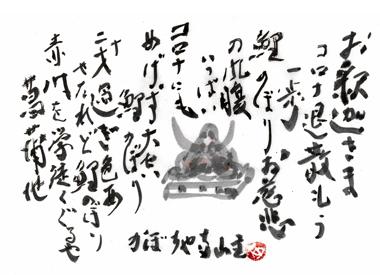 お釈迦さま
コロナ退散もう
一歩
鯉のぼりお慈悲
の風腹
いっぱい
コロナにも
めげず大空
鯉のぼり
二十才過ぎ色あ
せたれど鯉のぼり
赤門を学徒くぐるや
寺山主